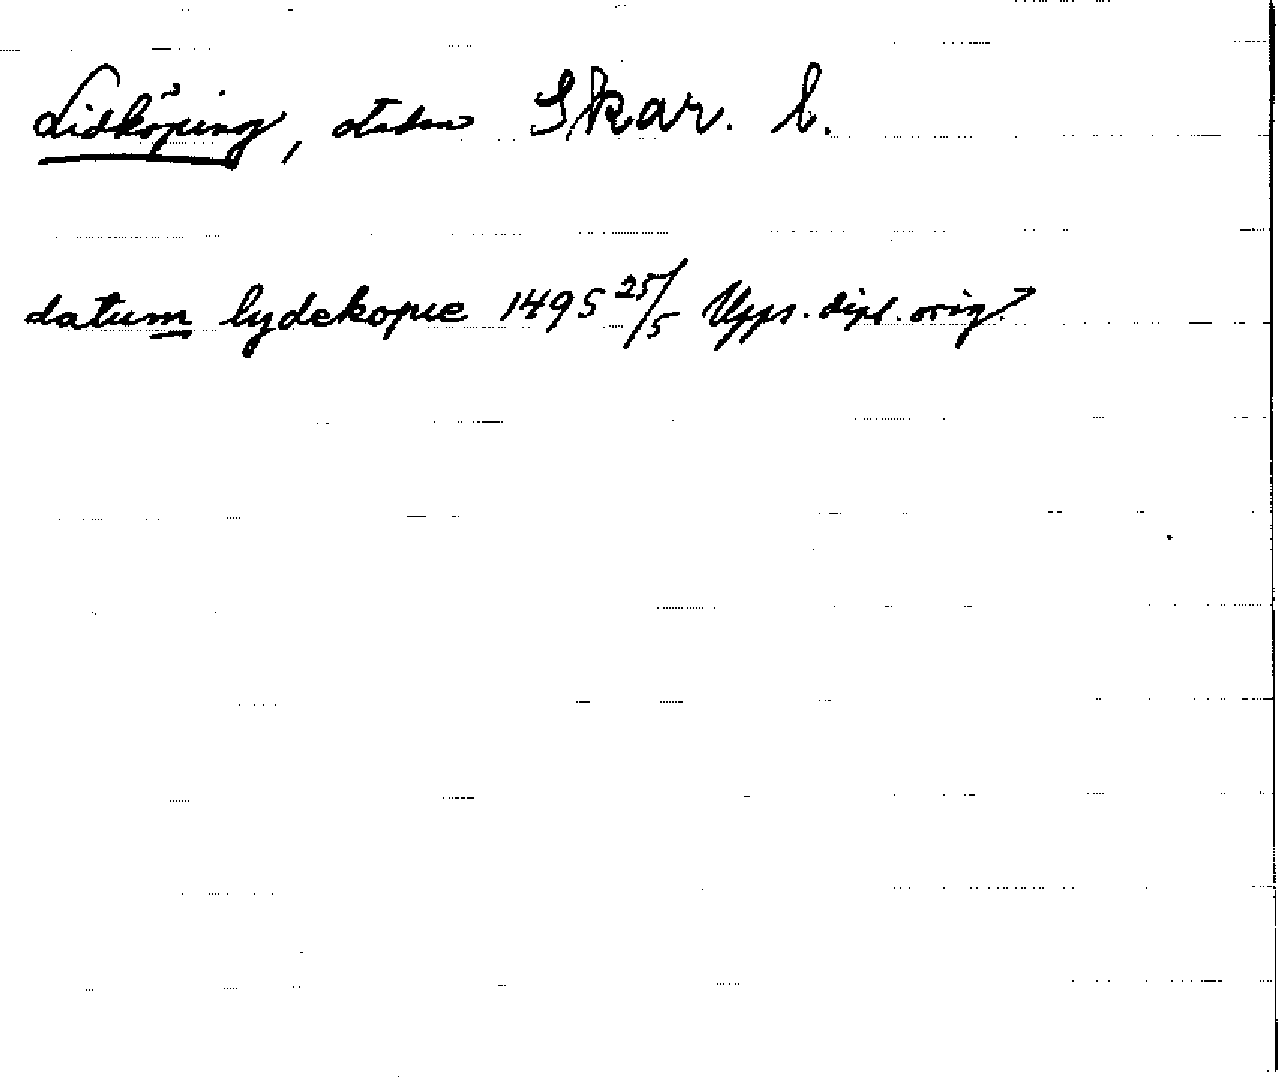 Lidköping, staden Skar. l.
datum lydekopie 1495 25/5 Upps. dipl. orig.